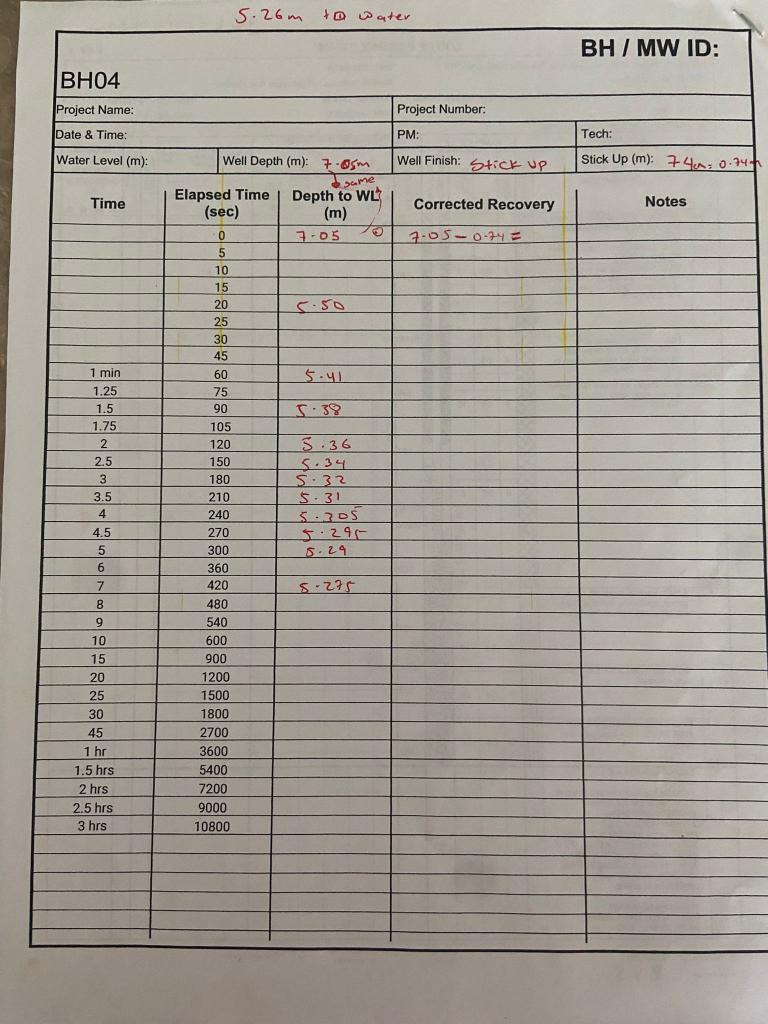 5.26m to water
BH / MW ID:
BH04
Project Name: Project Number:
Date & Time: PM: Tech:
Water Level (m): Well Depth (m): 7.05m Well Finish: Stick up Stick Up (m): 74cm = 0.74m
same
Time Elapsed Time (sec) Depth to WL (m) Corrected Recovery Notes
0 7.05 7.05 - 0.74 =
5
10
15
20 5.50
25
30
45
1 min 60 5.41
1.25 75
1.5 90 5.38
1.75 105
2 120 5.36
2.5 150 5.34
3 180 5.32
3.5 210 5.31
4 240 5.305
4.5 270 5.295
5 300 5.29
6 360
7 420 5.275
8 480
9 540
10 600
15 900
20 1200
25 1500
30 1800
45 2700
1 hr 3600
1.5 hrs 5400
2 hrs 7200
2.5 hrs 9000
3 hrs 10800